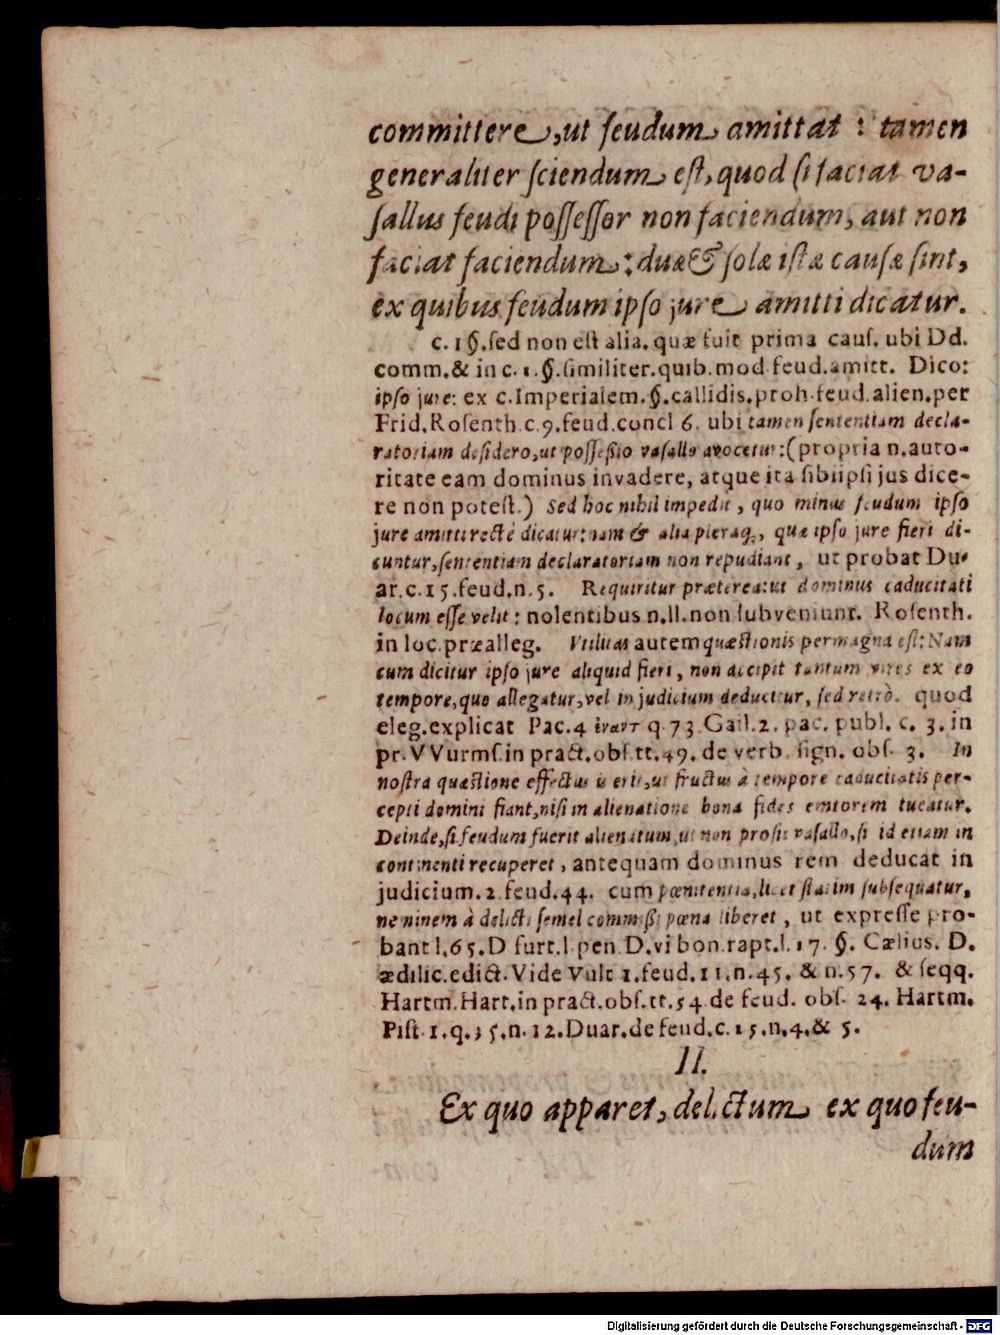 committere, ut feudum amittat : tamen
generaliter ſciendum eſt, quod ſi faciat va-
ſallus feudi poſſeſſor non faciendum, aut non
faciat faciendum : duæ & ſolæ iſtæ cauſæ ſint,
ex quibus feudum ipſo jure amitti dicatur.
c. 1 §. ſed non eſt alia. quæ fuit prima cauſ. ubi Dd.
comm. & in c. 1. §. ſimiliter. quib. mod feud. amitt. Dico:
ipſo jure: ex c. Imperialem. §. callidis. proh. feud. alien. per
Frid. Roſenth. c. 9. feud. concl 6. ubi tamen ſententiam decla-
ratoriam deſidero, ut poſſeßio vaſallo avocetur: (propria n. auto-
ritate eam dominus invadere, atque ita ſibiipſi jus dice-
re non poteſt.) Sed hoc nihil impedit, quo minus feudum ipſo
jure amitti rectè dicatur: nam & alia pleraq;, quæ ipſo jure fieri di-
cuntur, ſententiam declaratoriam non repudiant, ut probat Du-
ar. c. 15. feud. n. 5. Requiritur præterea: ut dominus caducitati
locum eſſe velit: nolentibus n. ll. non ſubveniunt. Roſenth.
in loc. præalleg. Vtilitas autem quæſtionis permagna eſt: Nam
cum dicitur ipſo jure aliquid fieri, non accipit tantum vires ex eo
tempore, quo allegatur, vel in judicium deducitur, ſed retrò. quod
eleg. explicat Pac. 4 ἐναντ q. 73. Gail. 2. pac. publ. c. 3. in
pr. VVurmſ. in pract. obſ. tt. 49. de verb. ſign. obſ. 3. In
noſtra quæſtione effectus is erit, ut fructus à tempore caducitatis per-
cepti domini fiant, niſi in alienatione bona fides emtorem tueatur.
Deinde, ſi feudum fuerit alienatum, ut non proſit vaſallo, ſi id etiam in
continenti recuperet, antequam dominus rem deducat in
judicium. 2. feud. 44. cum pœnitentia, licet ſtatim ſubſequatur,
neminem à delicti ſemel commißi pœna liberet, ut expreſſe pro-
bant l. 65. D furt. l pen. D. vi bon. rapt. l. 17. §. Cælius. D.
ædilic. edict. Vide Vult 1. feud. 11. n. 45. & n. 57. & ſeqq.
Hartm. Hart. in pract. obſ. tt. 54 de feud. obſ. 24. Hartm.
Piſt. 1. q. 35. n. 12. Duar. de feud. c. 15. n. 4. & 5.
II.
Ex quo apparet, delictum ex quo feu-
dum
Digitalisierung gefördert durch die Deutsche Forschungsgemeinschaft - DFG